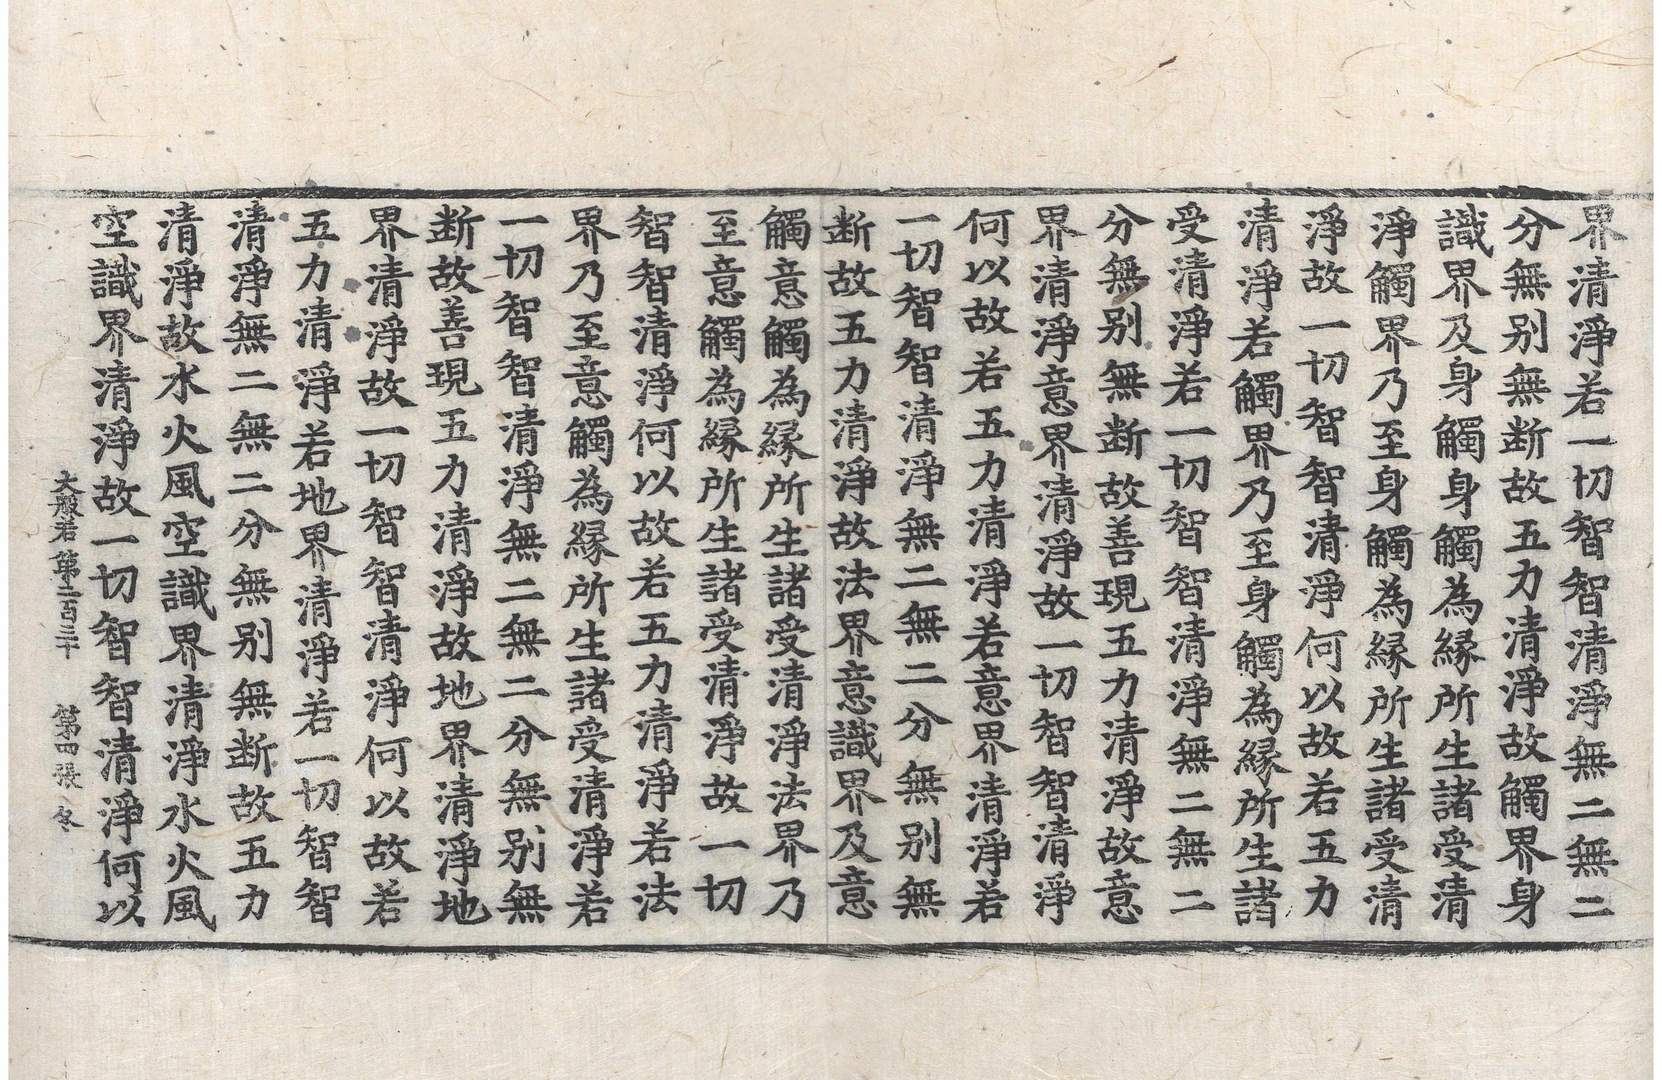 界清淨若一切智智清淨無二無二
分無别無断故五力清淨故觸界身
識界及身觸身觸為縁所生諸受清
淨觸界乃至身觸為縁所生諸受清
淨故一切智智清淨何以故若五力
清淨若觸界乃至身觸為縁所生諸
受清淨若一切智智清淨無二無二
分無别無断故善現五力清淨故意
界清淨意界清淨故一切智智清淨
何以故若五力清淨若意界清淨若
一切智智清淨無二無二分無别無
断故五力清淨故法界意識界及意
觸意觸為縁所生諸受清淨法界乃
至意觸為縁所生諸受清淨故一切
智智清淨何以故若五力清淨若法
界乃至意觸為縁所生諸受清淨若
一切智智清淨無二無二分無别無
断故善現五力清淨故地界清淨地
界清淨故一切智智清淨何以故若
五力清淨若地界清淨若一切智智
清淨無二無二分無别無断故五力
清淨故水火風空識界清淨水火風
空識界清淨故一切智智清淨何以
大般若第二百三十 第四張 冬